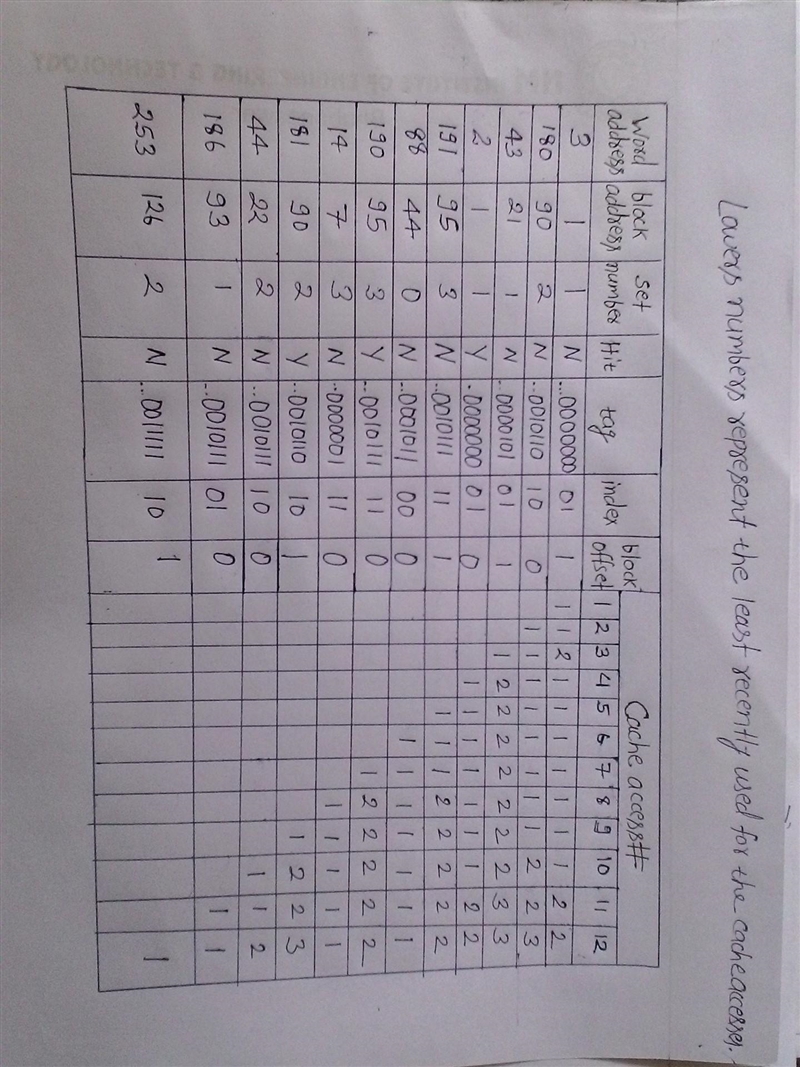 Lowers numbers represent the least recently used for the cache accesses.
Word address block address Set number Hit tag index block offset Cache access#
1 2 3 4 5 6 7 8 9 10 11 12
3 1 1 N ...0000000 01 1 1 1 2 1 1 1 1 1 1 1 2 2
180 90 2 N ..0010110 10 0 1 1 1 1 1 1 1 1 2 2 3
43 21 1 N ...0000101 01 1 1 2 2 2 2 2 2 2 3 3
2 1 1 Y .0000000 01 0 1 1 1 1 1 1 1 2 2
191 95 3 N ..0010111 11 1 1 1 1 2 2 2 2 2
88 44 0 N ..0001011 00 0 1 1 1 1 1 1 1
190 95 3 Y ..0010111 11 0 1 2 2 2 2 2
14 7 3 N ..0000001 11 0 1 1 1 1 1
181 90 2 Y ..0010110 10 1 1 2 2 3
44 22 2 N ..0010111 10 0 1 1 2
186 93 1 N ...0010111 01 0 1 1
253 126 2 N ...0011111 10 1 1